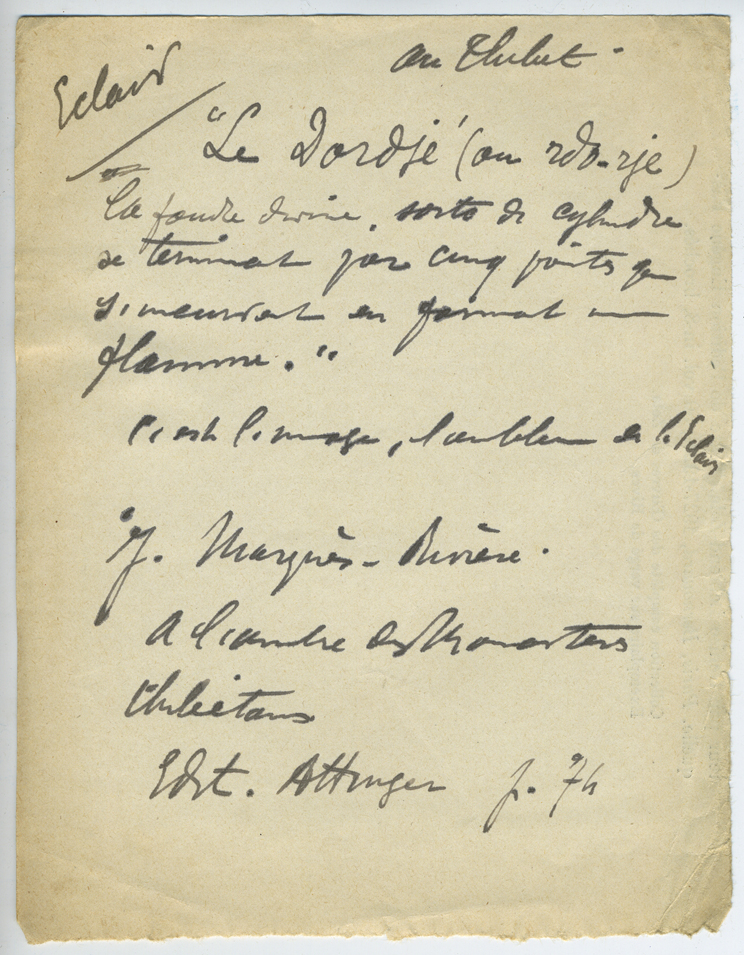 Eclair
au Thibet.
"Le Dordjé (ou rdo-rje)
la foudre divine, sorte de cylindre
se terminant par cinq pointes qui
s'incurvent en formant une
flamme."
C'est l'image, l'emblème de l'Eclair
J. Marquès-Rivière.
A l'ombre des Monastères
thibétains
Edit. Attinger p. 74